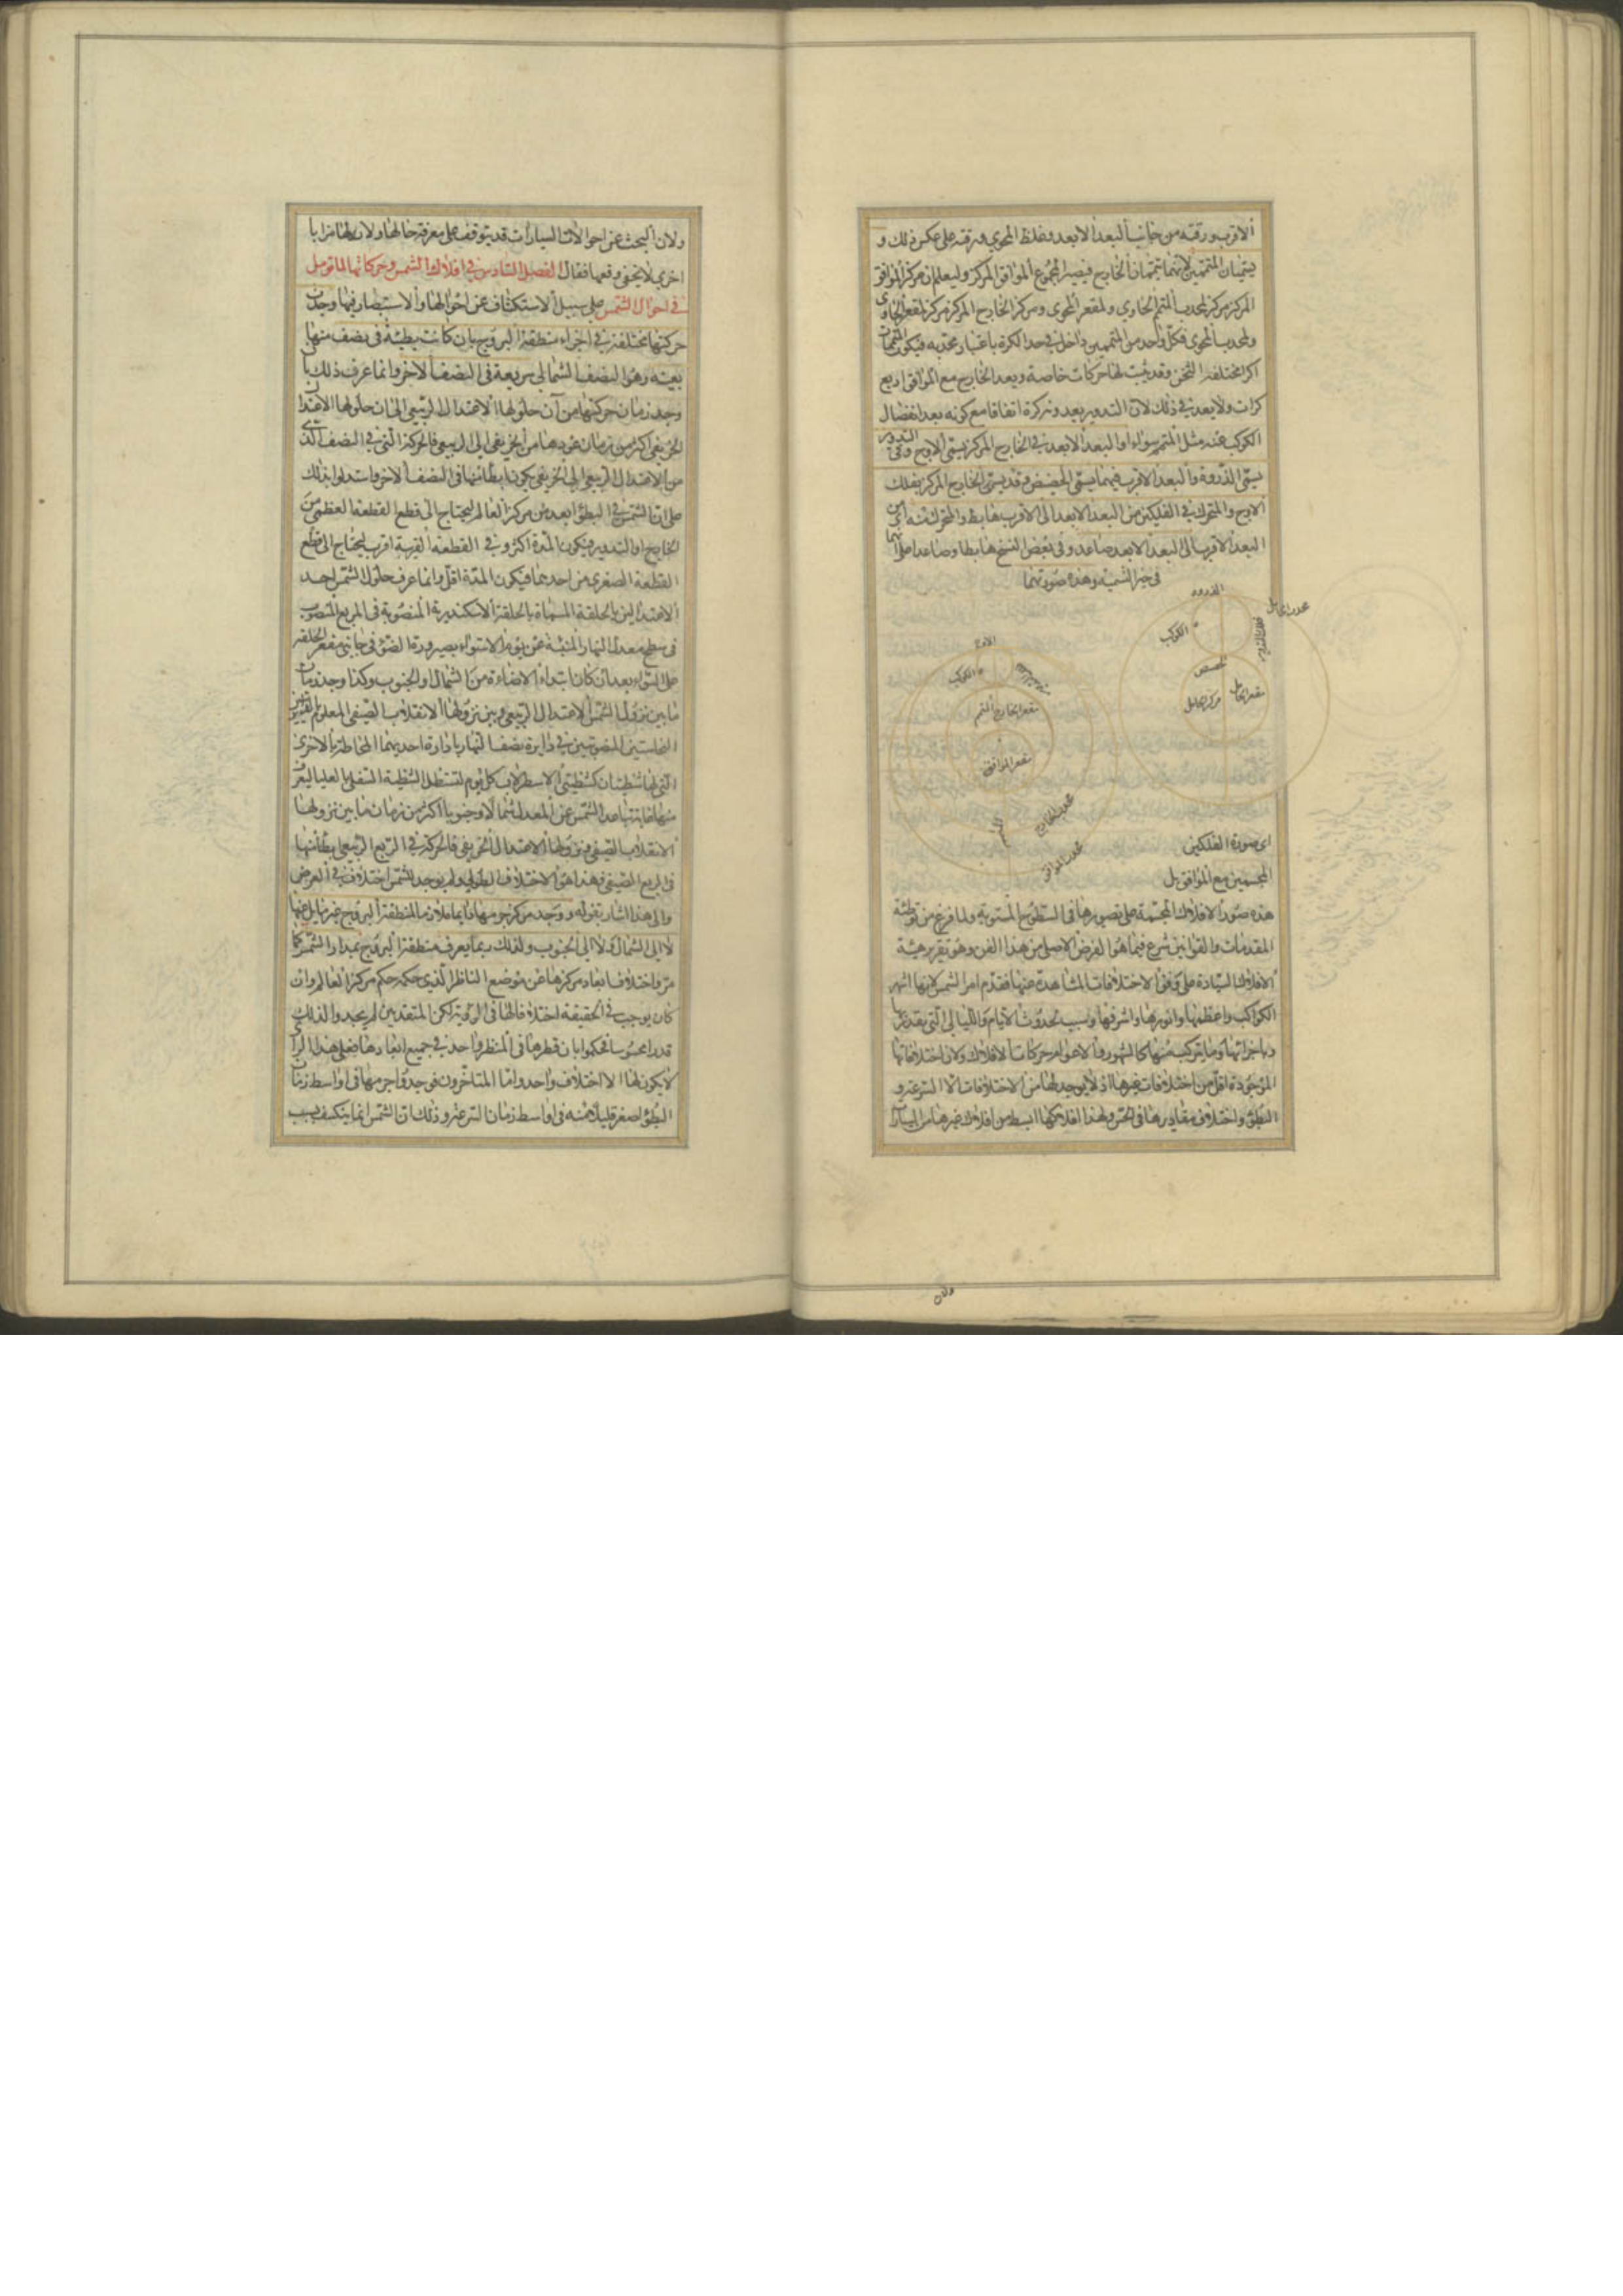 الاقرب ورقته من جانب البعد الابعد وغلظ المحوي ورقته على عكس ذلك و
يسميان المتممين لانهما يتممان الخارج فيصير المجموع الموافق المركز وليعلم ان مركز الموافق
المركز مركز لمحدب المتمم الحاوي ولمقعر المحوى ومركز الخارج المركز مركز لمقعر الحاوى
ولمحدب المحوى فكل واحد من المتممين داخل في حد الكرة باعتبار محدبه فيكون المتممان
اكرا مختلفة الثخن وقد يثبت لهما حركات خاصة ويعد الخارج مع الموافق اربع
كرات ولا بعد في ذلك لان التدوير يعد كرة اتفاقا مع كونه بعد انفصال
الكوكب عنه مثل المتمم سواء والبعد الابعد في الخارج المركز يسمى الاوج وفي التدوير
يسمى الذروة والبعد الاقرب فيهما يسمى الحضيض وقد يسمى الخارج المركز بفلك
الاوج والمتحرك في الفلكين من البعد الابعد الى الاقرب هابط والمتحرك فيه من
البعد الاقرب الى البعد الابعد صاعد وفى بعض النسخ هابطا وصاعدا على انهما
في حيز التسمية وهذه صورتهما
الذروة
محدب الحامل
فلك التدوير
الكوكب
الحضيض
مقعر الحامل
مركز الحامل
الاوج
الكوكب
مقعر الخارج المتمم
مقعر الموافق
محدب الخارج
محدب الموافق
اى صورة الفلكين
المجسمين مع الموافق بل
هذه صور الافلاك المجسمة على تصويرها في السطوح المستوية ولما فرغ من توطئة
المقدمات والقوانين شرع فيما هو الغرض الاصلى من هذا الفن وهو تقرير هيئة
الافلاك السيارة على وفق الاختلافات المشاهدة عنها فقدم امر الشمس لانها اشهر
الكواكب واعظمها وانورها واشرفها وسبب لحدوث الايام والليالى التى يقدر بها
وباجزائها وما يتركب منها كالشهور والاعوام حركات الافلاك ولان اختلافاتها
الموجودة اقل من اختلافات غيرها اذ لا يوجد لها من الاختلافات الا السرعة و
البطؤ واختلاف مقاديرها فى الحس ولهذا افلاكها ابسط من افلاك غيرها من السيارات
ولان
ولان البحث عن احوالات السيارات قد يتوقف على معرفة حالها ولان لها مزايا
اخرى لا يخفى وقعها فقال الفصل السادس في افلاك الشمس وحركاتها لما تومل
في احوال الشمس على سبيل الاستكشاف عن احوالها والاستبصار فيها وجدت
حركتها مختلفة في اجزاء منطقة البروج بان كانت بطيئة في نصف منها
بعينه وهو النصف الشمالي سريعة في النصف الاخر وانما عرف ذلك بان
وجد زمان حركتها من آن حلولها الاعتدال الربيعي الى ان حلولها الاعتدال
الخريفي اكثر من زمان عودها من الخريفي الى الربيعي فالحركة التي في النصف الذى
من الاعتدال الربيعي الى الخريفي يكون ابطأ منها في النصف الاخر واستدلوا بذلك
على ان الشمس في البطؤ ابعد من مركز العالم ليحتاج الى قطع القطعة العظمى من
الخارج او التدوير فيكون المدة اكثر وفي القطعة القريبة اقرب ليحتاج الى قطع
القطعة الصغرى من احدهما فيكون المدة اقل وانما عرف حلول الشمس احد
الاعتدالين بالحلقة المسماة بالحلقة الاسكندرية المنصوبة في المربع المنصوب
في سطح معدل النهار المنبئة عن يوم الاستواء بصيرورة الضوء في جانبى مقعر الحلقة
على السواء بعد ان كان ابتداء الاضاءة من الشمال او الجنوب وكذا وجد زمان
ما بين نزول الشمس الاعتدال الربيعي وبين نزولها الانقلاب الصيفي المعلوم
المنصوبتين في دايرة نصف النهار بادارة احديهما المحاطة بالاخرى
التى لها شظيتان كشظيتى الاسطرلاب كل يوم لتستظل الشظية السفلى بالعليا ليعرف
منها غاية تباعد الشمس عن المعدل شمالا وجنوبا اكثر من زمان ما بين نزولها
الانقلاب الصيفي ونزولها الاعتدال الخريفي فالحركة في الربع الربيعي ابطأ منها
في الربع الصيفي فهذا هو الاختلاف الطولي ولم يوجد للشمس اختلاف في العرض
والى هذا اشار بقوله ووجد مركز جرمها دايما ملازما لمنطقة البروج غير مايل عنها
لا الى الشمال ولا الى الجنوب ولذلك ربما يعرف منطقة البروج بمدار الشمس كما
مر واختلاف ابعاد مركزها عن موضع الناظر الذي حكمه حكم مركز العالم وان
كان يوجب في الحقيقة اختلافا لها في الرؤية لكن المتقدمين لم يجدوا لذلك
قدرا محسوسا فحكموا بان قطرها في المنظر واحد في جميع ابعادها فعلى هذا الرأى
لا يكون لها الا اختلاف واحد واما المتاخرون فوجدوا جرمها في اواسط زمان
البطؤ اصغر قليلا منه في اواسط زمان السرعة وذلك ان الشمس انما ينكسف بسبب